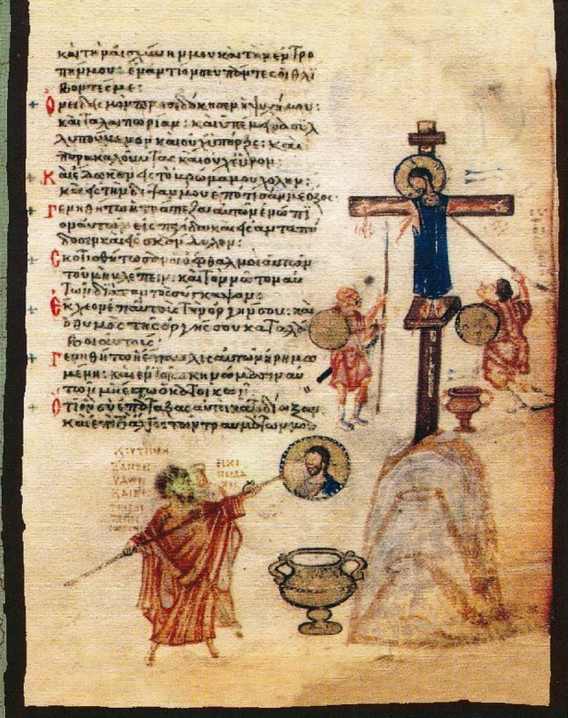 καὶ τὴν αἰσχύνην μου καὶ τὴν ἐντρο
πήν μου· ἐναντίον σου πάντες οἱ θλί
βοντές με:
Ὀνειδισμὸν προσεδόκησεν ἡ ψυχή μου:
καὶ ταλαιπωρίαν: καὶ ὑπέμεινα συλ
λυπούμενον καὶ οὐχ ὑπῆρξε: καὶ
παρακαλοῦντας καὶ οὐχ εὗρον:
Καὶ ἔδωκαν εἰς τὸ βρῶμά μου χολήν:
καὶ εἰς τὴν δίψαν μου ἐπότισάν με ὄξος:
Γενηθήτω ἡ τράπεζα αὐτῶν ἐνώπι
ον αὐτῶν εἰς παγίδα καὶ εἰς ἀνταπό
δοσιν καὶ εἰς σκάνδαλον:
Σκοτισθήτωσαν οἱ ὀφθαλμοὶ αὐτῶν
τοῦ μὴ βλέπειν: καὶ τὸν νῶτον αὐ
τῶν διὰ παντὸς σύγκαμψον:
Ἔκχεον ἐπ' αὐτοὺς τὴν ὀργήν σου: καὶ
ὁ θυμὸς τῆς ὀργῆς σου καταλά
βοι αὐτούς:
Γενηθήτω ἡ ἔπαυλις αὐτῶν ἠρημω
μένη: καὶ ἐν τοῖς σκηνώμασιν αὐ
τῶν μὴ ἔστω ὁ κατοικῶν:
Ὅτι ὃν σὺ ἐπάταξας αὐτοὶ κατεδίωξαν
καὶ ἐπὶ τὸ ἄλγος τῶν τραυμάτων μου